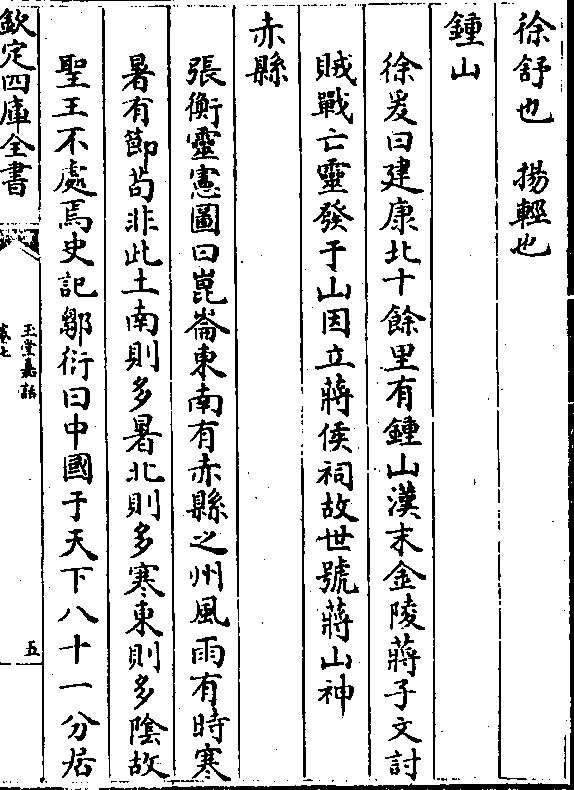 徐舒也　揚輕也
鍾山
徐爰曰建康北十餘里有鍾山漢末金陵蔣子文討
賊戰亡靈發于山因立蔣侯祠故世號蔣山神
赤縣
張衡靈憲圖曰崑崙東南有赤縣之州風雨有時寒
暑有節苟非此土南則多暑北則多寒東則多陰故
聖王不處焉史記鄒衍曰中國于天下八十一分居
欽定四庫全書
玉堂嘉話
卷七
五